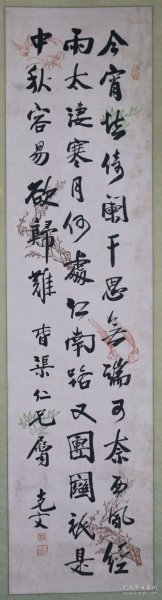 今宵怯倚闌干思無端可奈西風經
雨太凄寒月何處江南路又團圞祇是
中秋容易欲歸難 仁兄屬 克文